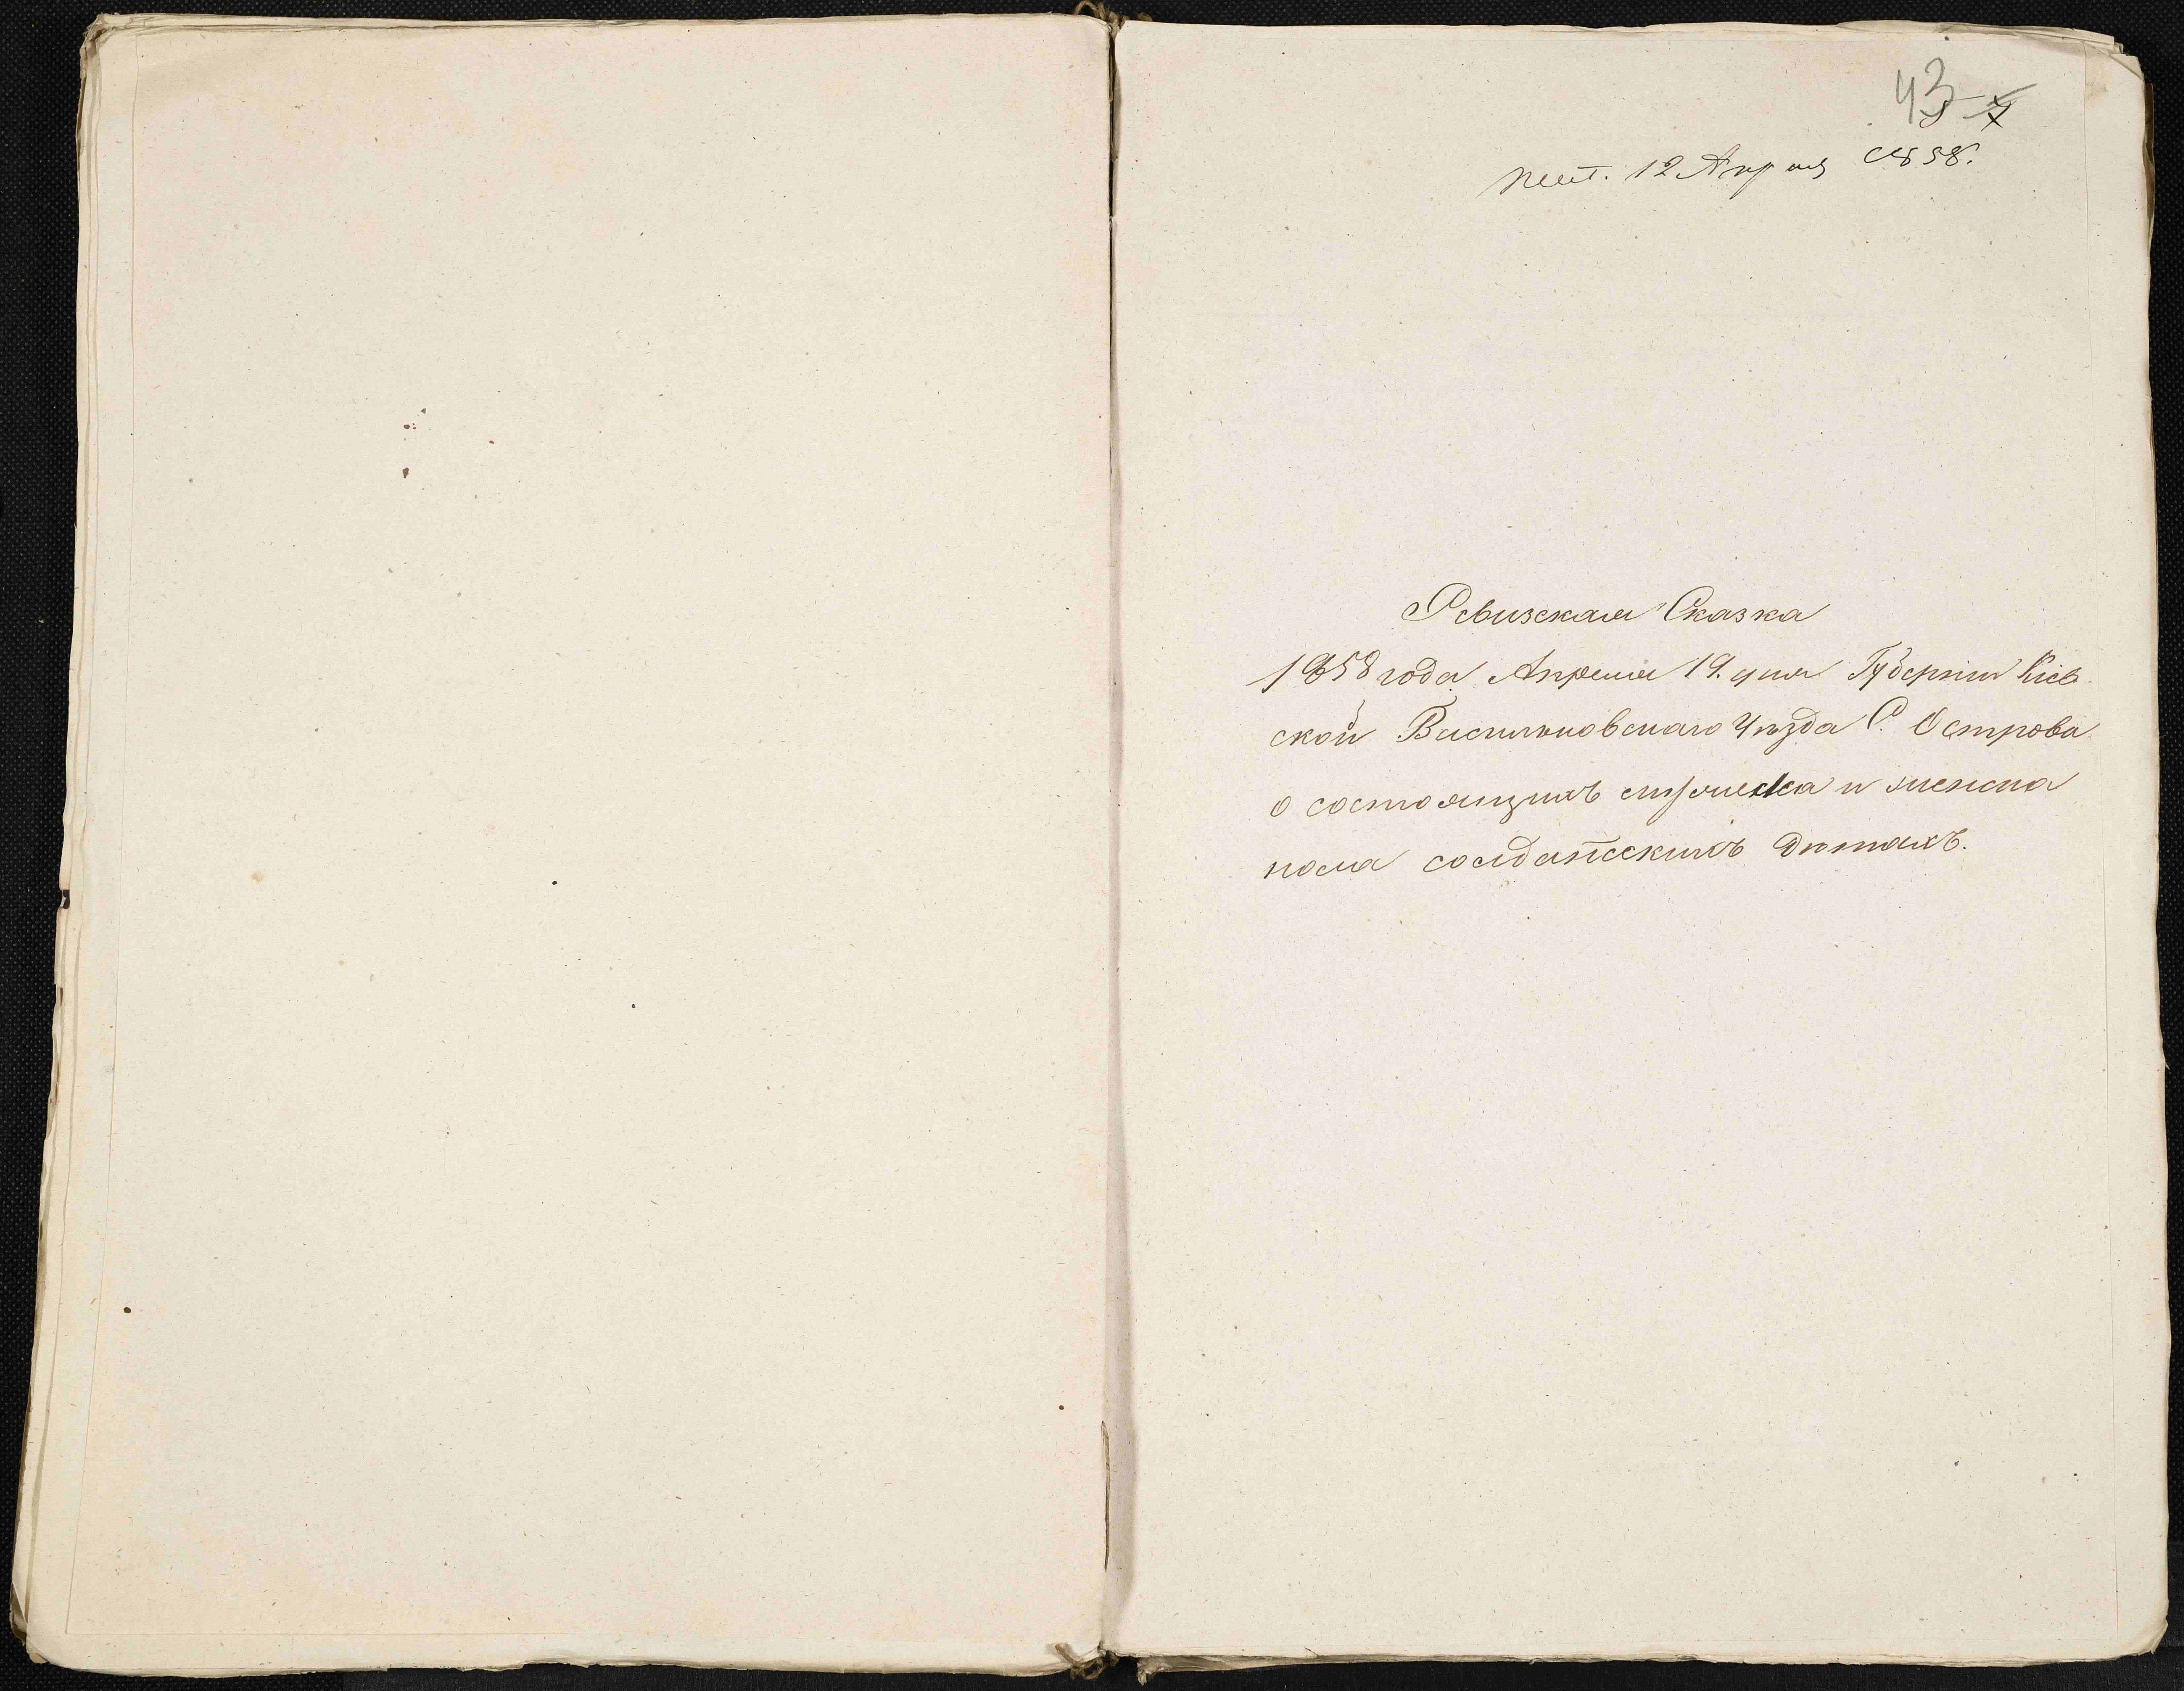 43 7
12 Апреля 1858.
Ревизская Сказка
1858 года Апреля 19. дня Губернии Кіев
ской Васильковскаго Уѣзда С. Острова
о состоящихъ мужеска и женска
пола солдатскихъ дѣтяхъ.